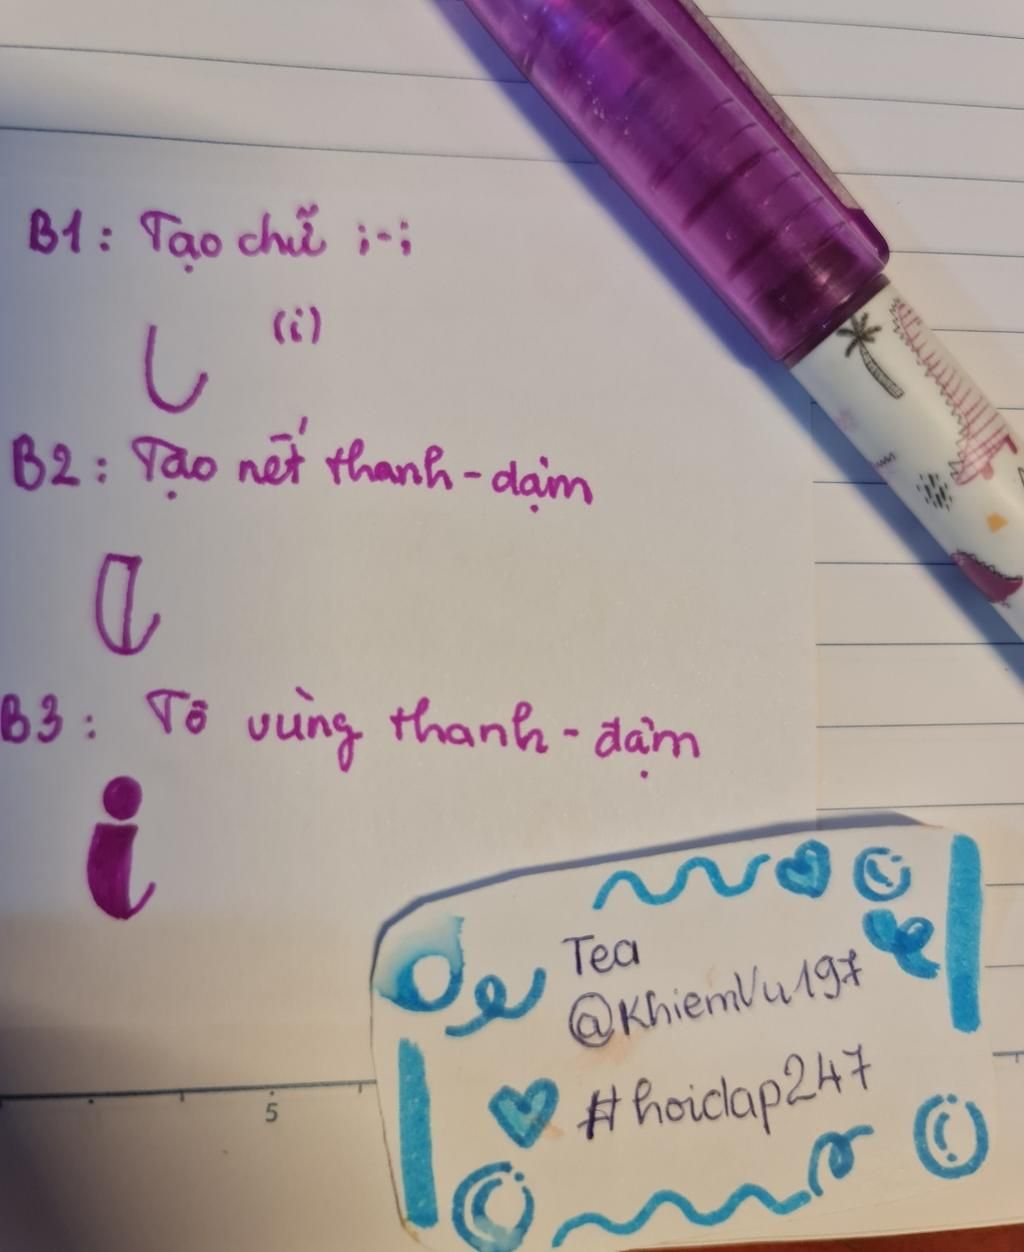 B1: Tạo chữ ;-;
(i)
B2: Tạo nết thanh-dậm
B3: Tô vùng thanh-đậm
i
Tea
@KhiemVu197
#hoidap247
5